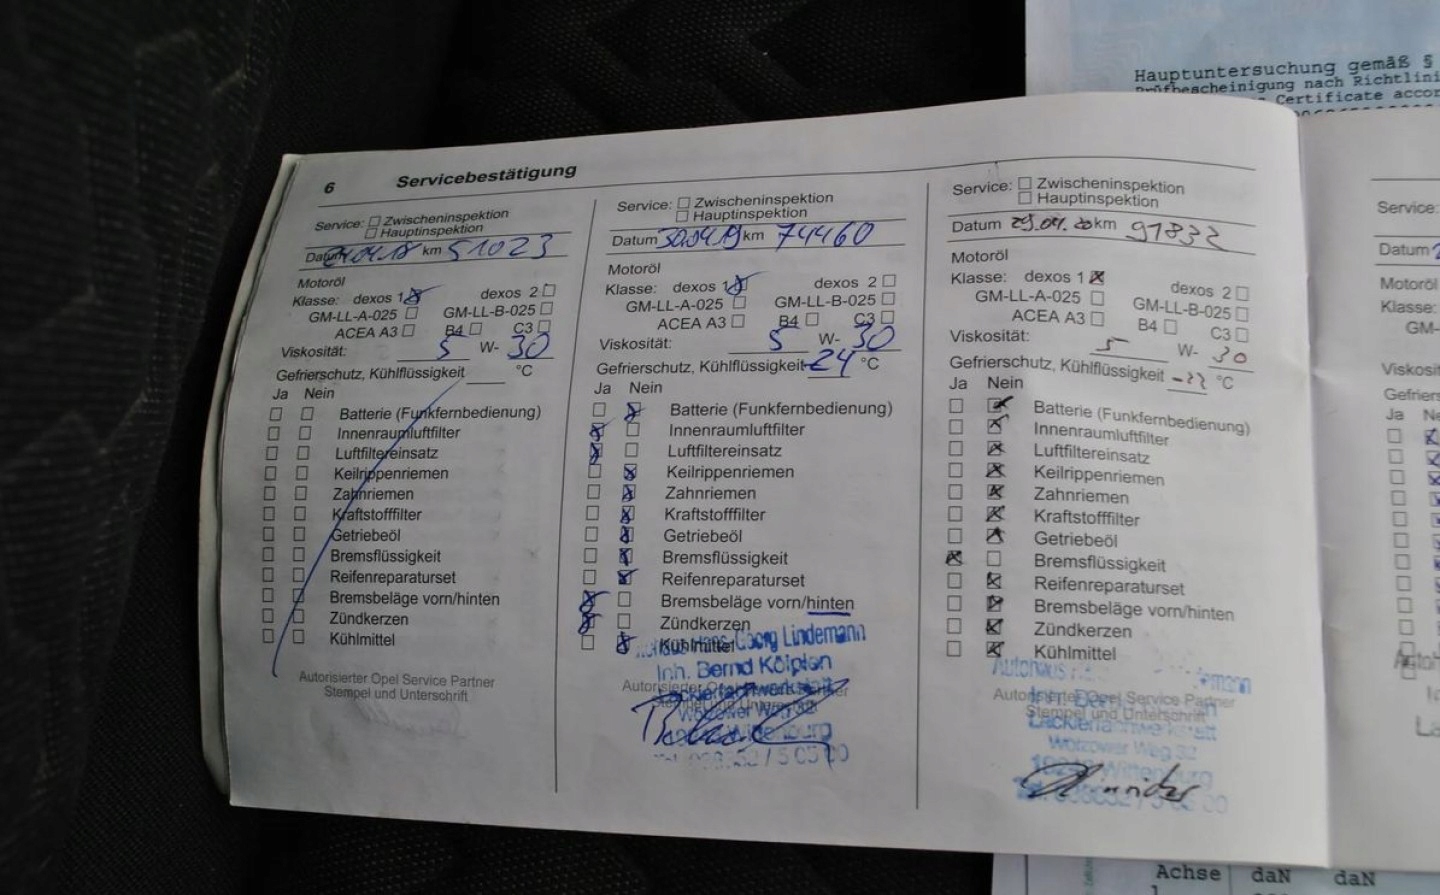 Hauptuntersuchung gemäß §
Prüfbescheinigung nach Richtlini
Certificate accor
6 Servicebestätigung
Service: Zwischeninspektion
Hauptinspektion
Datum 04.18 km 51023
Motoröl
Klasse: dexos 1 dexos 2
GM-LL-A-025 GM-LL-B-025
ACEA A3 B4 C3
Viskosität: 5 W- 30
Gefrierschutz, Kühlflüssigkeit °C
Ja Nein
Batterie (Funkfernbedienung)
Innenraumluftfilter
Luftfiltereinsatz
Keilrippenriemen
Zahnriemen
Kraftstofffilter
Getriebeöl
Bremsflüssigkeit
Reifenreparaturset
Bremsbeläge vorn/hinten
Zündkerzen
Kühlmittel
Autorisierter Opel Service Partner
Stempel und Unterschrift
Service: Zwischeninspektion
Hauptinspektion
Datum 30.04.19 km 74460
Motoröl
Klasse: dexos 1 dexos 2
GM-LL-A-025 GM-LL-B-025
ACEA A3 B4 C3
Viskosität: 5 W- 30
Gefrierschutz, Kühlflüssigkeit -24 °C
Ja Nein
Batterie (Funkfernbedienung)
Innenraumluftfilter
Luftfiltereinsatz
Keilrippenriemen
Zahnriemen
Kraftstofffilter
Getriebeöl
Bremsflüssigkeit
Reifenreparaturset
Bremsbeläge vorn/hinten
Zündkerzen
Kühlmittel
Hans-Georg Lindemann
Inh. Bernd Kölpien
Autorisierter Opel Service Partner
Lackierfachwerkstatt
Stempel und Unterschrift
Wölzower Weg 32
Wittenburg
Service: Zwischeninspektion
Hauptinspektion
Datum 29.04.20 km 91832
Motoröl
Klasse: dexos 1 dexos 2
GM-LL-A-025 GM-LL-B-025
ACEA A3 B4 C3
Viskosität: 5 W- 30
Gefrierschutz, Kühlflüssigkeit °C
Ja Nein
Batterie (Funkfernbedienung)
Innenraumluftfilter
Luftfiltereinsatz
Keilrippenriemen
Zahnriemen
Kraftstofffilter
Getriebeöl
Bremsflüssigkeit
Reifenreparaturset
Bremsbeläge vorn/hinten
Zündkerzen
Kühlmittel
Autohaus
Autorisierter Opel Service Partner
Stempel und Unterschrift
Lackierfachwerkstatt
Wölzower Weg 32
19243 Wittenburg
Service:
Datum
Motoröl
Klasse:
GM-
Viskosit
Gefriers
Ja Ne
Achse daN daN
1